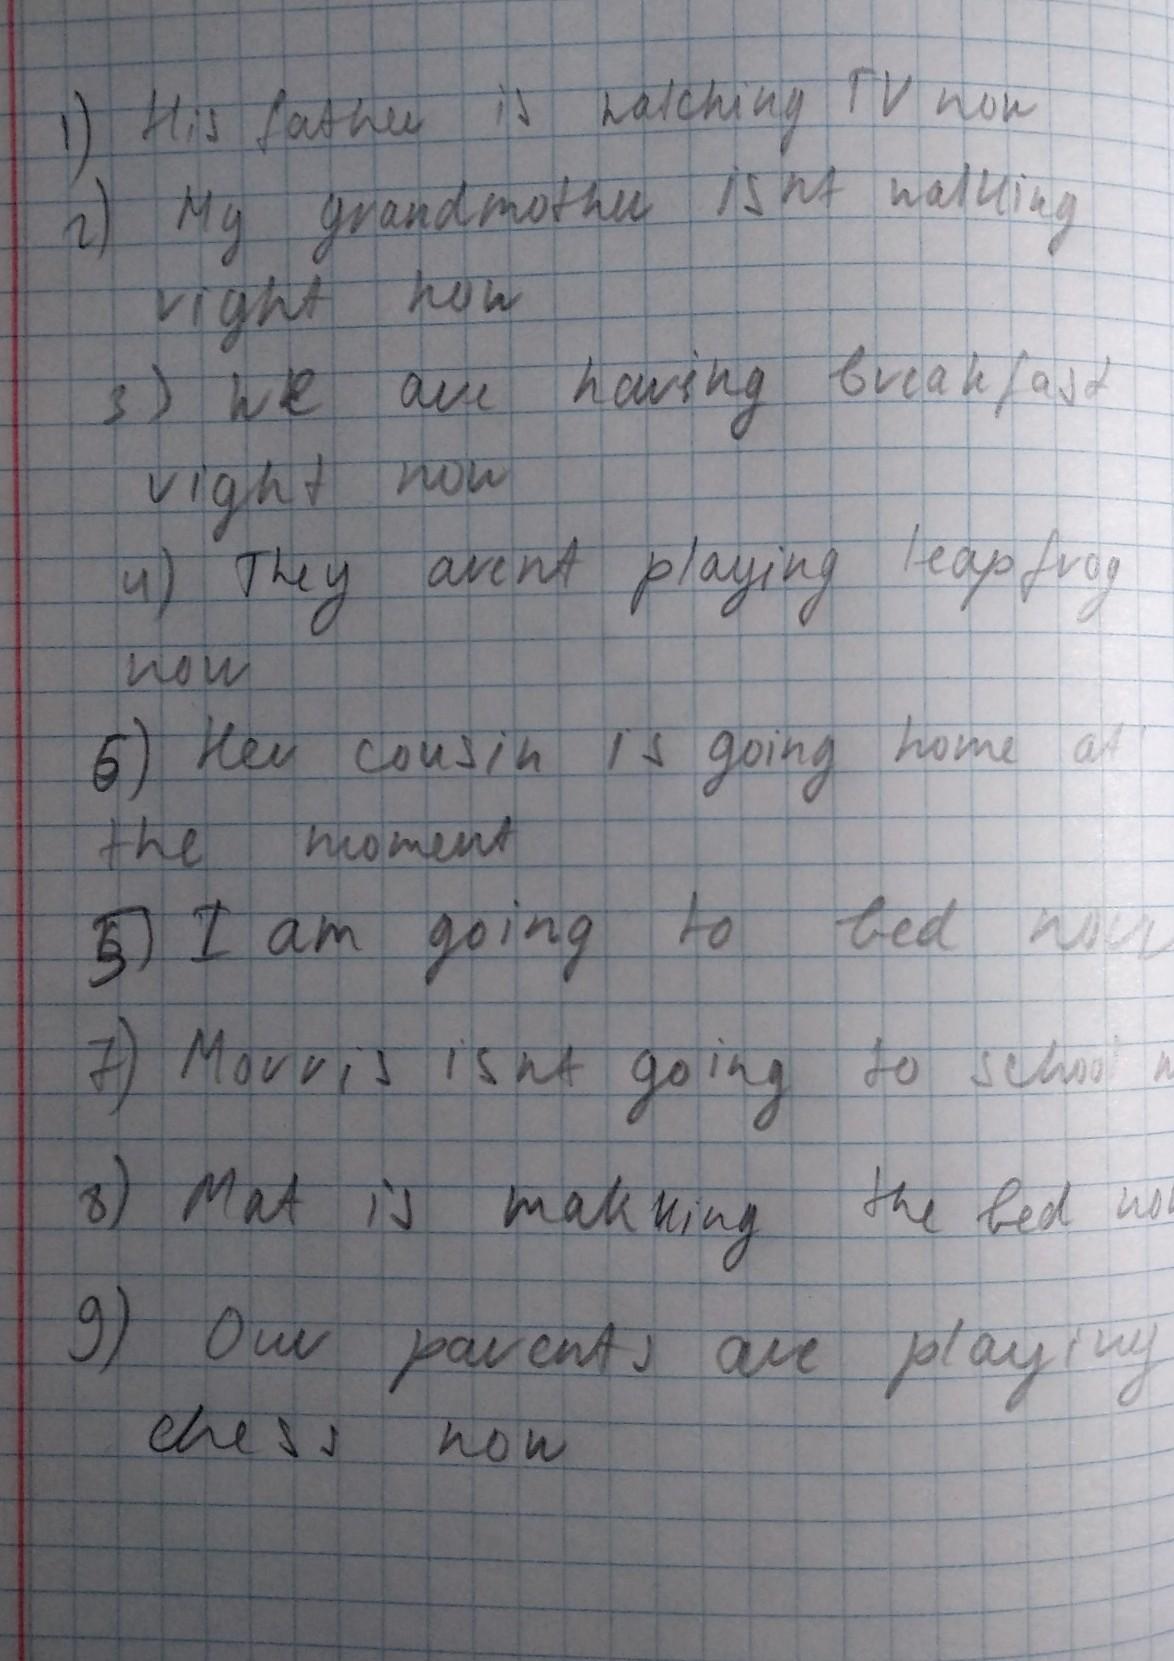 1) His father is watching TV now
2) My grandmother isnt walking
right now
3) we are having breakfast
right now
4) They arent playing leapfrog
now
6) Her cousin is going home at
the moment
5) I am going to bed now
7) Morris isnt going to school
8) Mat is makking the bed now
9) Our parents are playing
chess now